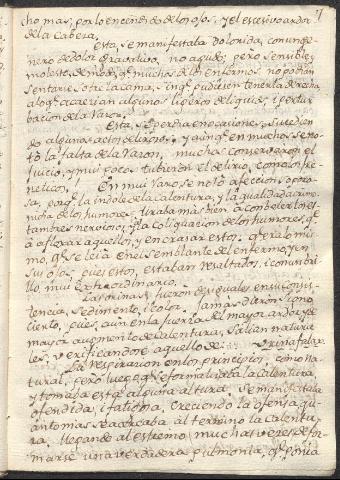 cho mas, por lo encendido de los ojos, y el excesivo ardor
de la Cabeza.
Esta, se manifestaba dolorida, con un ge-
nero de dolor gravativo, no agudo, pero sensible, y
molesto de modo, qe muchos de los enfermos, no podian
sentarse sobre la cama, sin qe pudiesen tenerla derecha
a lo qe acaecian algunos ligeros deliquios, i pertur-
bacion de la Razon.
Esta, se perdia en ocasiones, sucedien-
do algunos actos delirosos, y aunqe en muchos se no-
tó la falta de la Razon, muchos conservaron el
juicio, y mui pocos tubieron el delirio, como los fre-
neticos.
En mui raro, se notó afeccion soporo-
sa, porqe la indole de la Calentura, y la qualidad acrimo-
niosa de los humores, tiraba mas bien a
tambres nerviosos, y a la coliquacion de los humores, qe
a aflorar aquellos, y encrasar estos, qe era lo mis-
mo, qe se leia en el semblante del enfermo, y en
sus ojos, pues estos, estaban resaltados, i con un bri-
llo mui extraordinario.
Las orinas, fueron desiguales en su consis-
tencia, sedimento, i color. Jamas dieron signo
cierto, pues, aun en la fuerza del mayor ardor, y de
mayor augmento de calentura, salian natura-
les, verificandose aquello de: Urina falax.
La respiracion en los principios, como na-
tural, pero luego qe se formalizaba la Calentura
y tomaba esta alguna altura, se manifestaba
ofendida, i fatigosa, creciendo la ofensa qu-
anto mas se acercaba al termino la calentu-
ra, llegando al estremo (muchas veces) de for-
marse una verdadera pulmonia, qe ponia